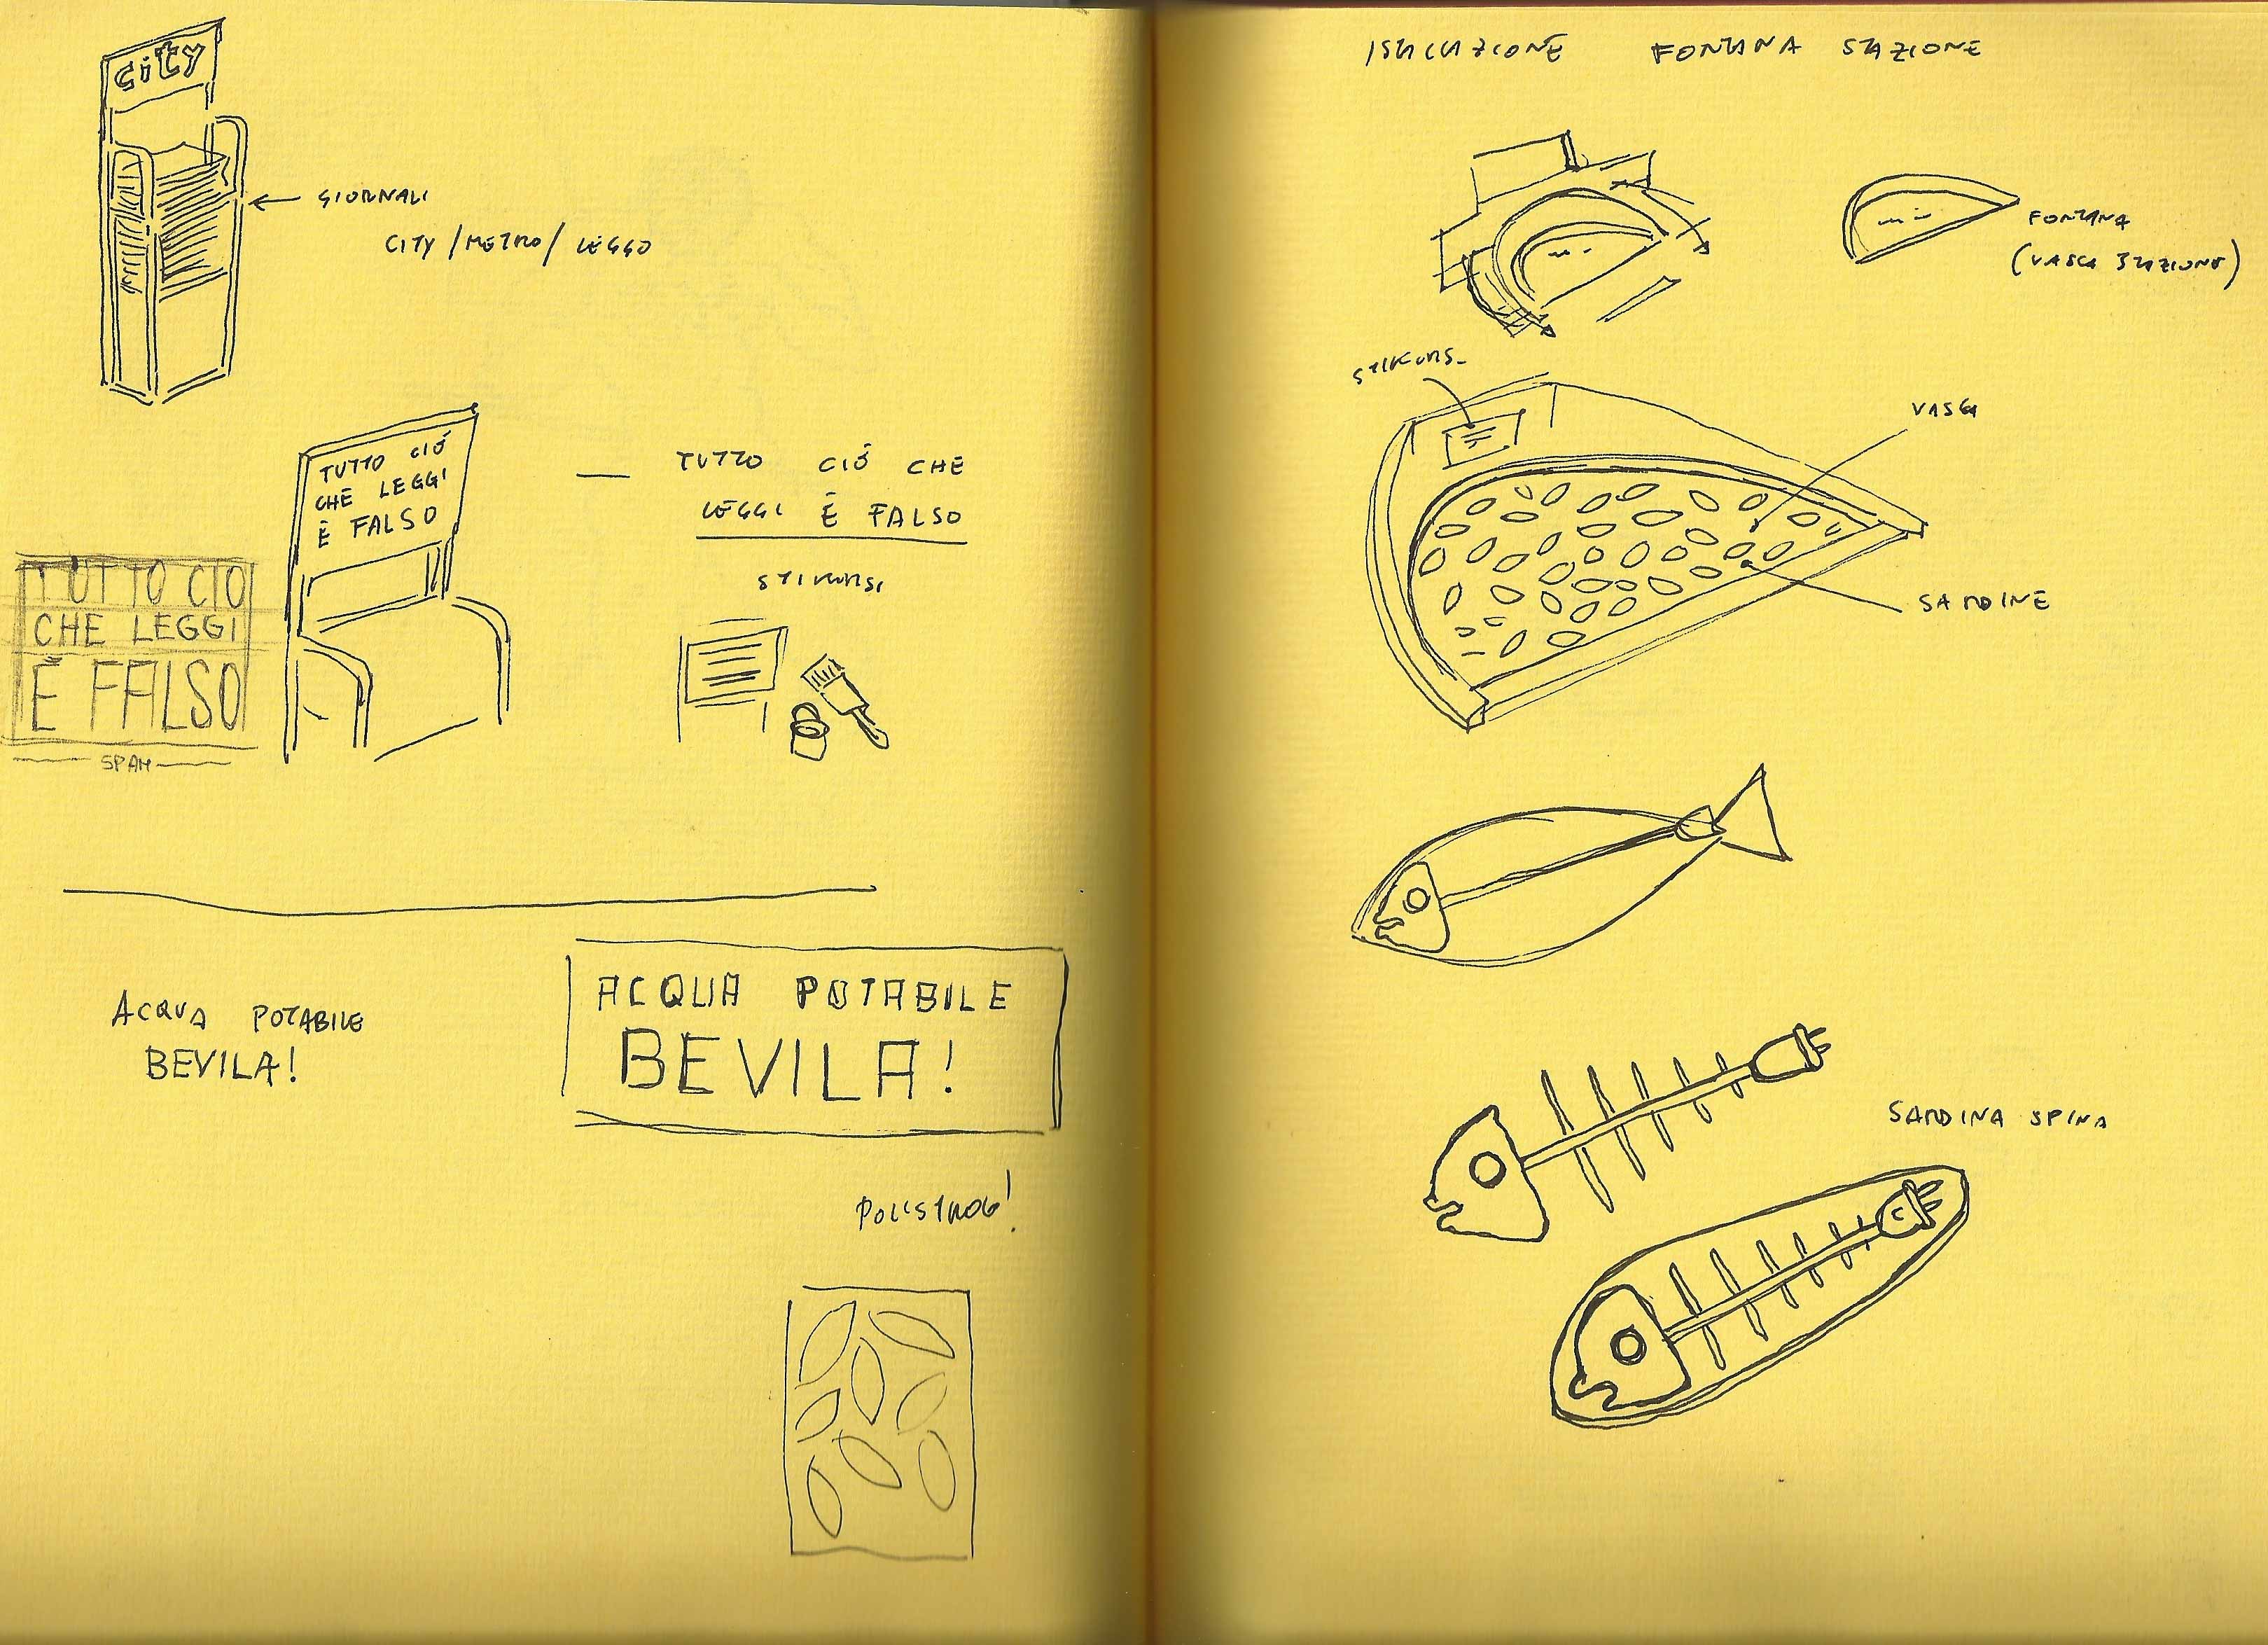 city
GIORNALI
CITY / METRO / LEGGO
TUTTO CIÓ
CHE LEGGI
É FALSO
TUTTO CIÓ CHE
LEGGI É FALSO
TUTTO CIO
CHE LEGGI
É FALSO
SPAM
ACQUA POTABILE
BEVILA!
ACQUA POTABILE
BEVILA!
ISTALLAZIONE FONTANA STAZIONE
FONTANA
(VASCA STAZIONE)
VASCA
SARDINE
SARDINA SPINA